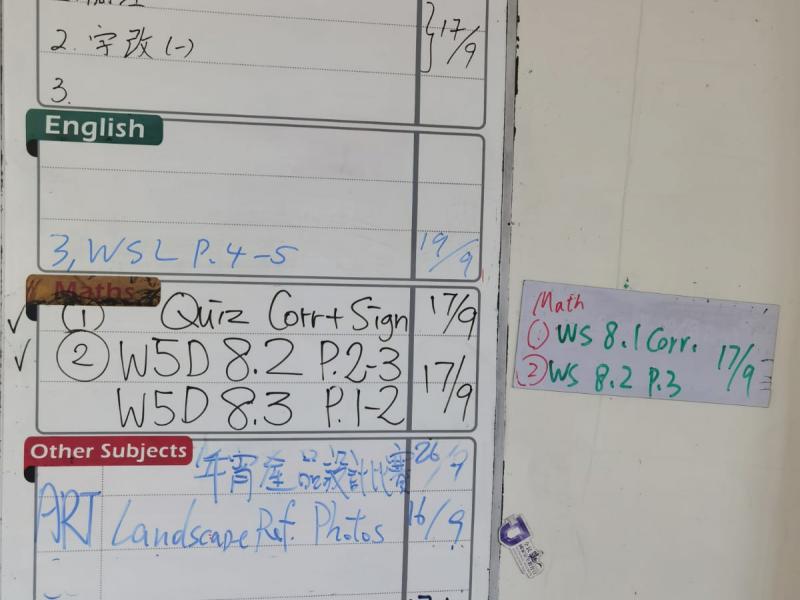 2. 字改 (一)
17/9
3.
English
3, WS L P.4-5 19/9
Maths
① Quiz Corr + Sign 17/9
② W5D 8.2 P.2-3
W5D 8.3 P.1-2 17/9
Other Subjects
年宵產品設計比賽 26/9
ART Landscape Ref. Photos 16/9
Math
① WS 8.1 Corr.
② WS 8.2 P.3 17/9